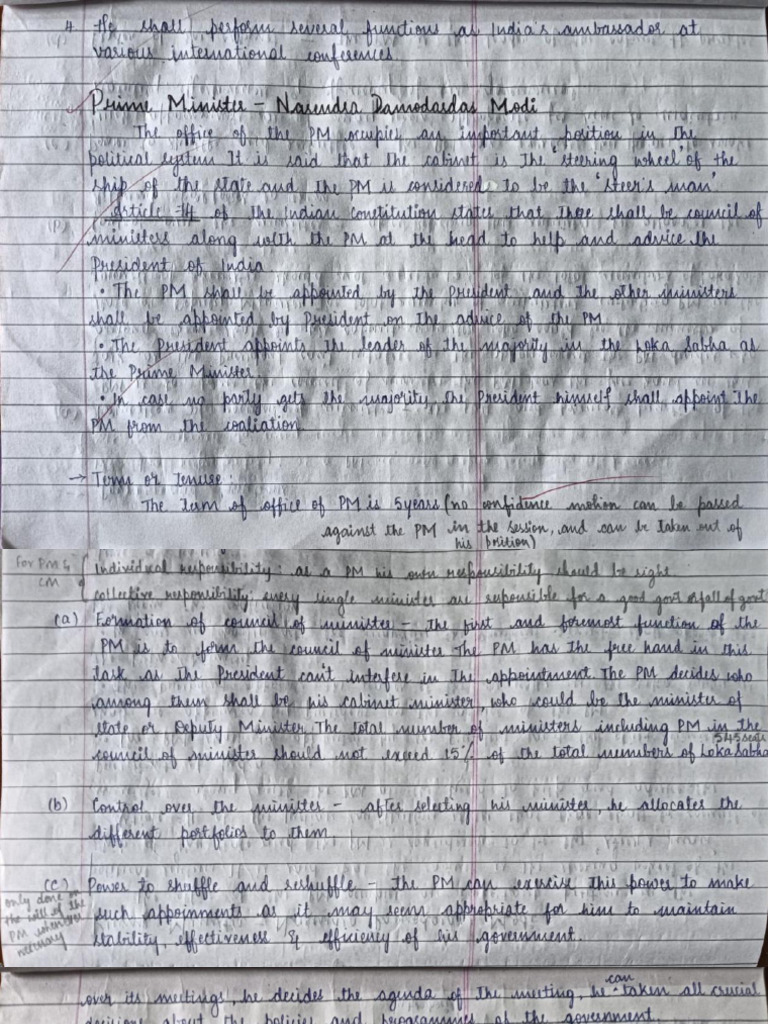 4. He shall perform several functions as India's ambassador at
various international conferences.
Prime Minister - Narendra Damodardas Modi
The office of the PM occupies an important position in the
political system It is said that the cabinet is The 'steering wheel' of the
ship of the state and the PM is considered to be the 'steer's man'.
Article 74 of the Indian constitution states that There shall be council of
ministers along with the PM at the head to help and advice the
President of India
• The PM shall be appointed by the President and the other ministers
shall be appointed by President on the advice of the PM.
• The President appoints the leader of the majority in the Loka Sabha as
the Prime Minister.
• In case no party gets the majority the President himself shall appoint the
PM from the coaliation.
→ Term or Tenure:
The term of office of PM is 5 years (no confidence motion can be passed
against the PM in the session, and can be taken out of
his position)
For PM &
CM
Individual responsibility: as a PM his own responsibility should be right
collective responsibility: every single minister are reponsible for a good govt or fall of govt
(a) Formation of council of minister - The first and foremost function of the
PM is to form the council of minister The PM has the free hand in this
task as the President can't interfere in the appointment. The PM decides who
among them shall be his cabinet minister, who could be the minister of
state or Deputy Minister. The total number of ministers including PM in the
545 seats
council of minister should not exceed 15% of the total members of Loka Sabha
(b) Control over the minister - after selecting his minister, he allocates the
different portfolios to them.
(c) Power to shuffle and reshuffle - the PM can exercise this power to make
only done on
the will of the
PM whenever
necessary
such appoinments as it may seem appropriate for him to maintain
stability, effectiveness & efficiency of his government.
can
over its meetings, he decides the agenda of the meeting, he taken all crucial
decisions about the policies and programmes of the government.